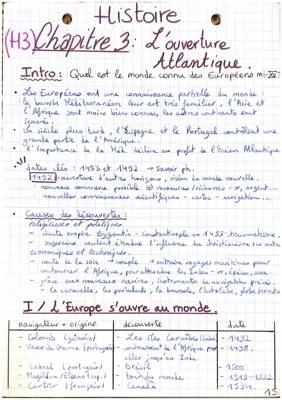 Histoire
(H3) Chapitre 3: L'ouverture
Atlantique.
Intro: Quel est le monde connu des Européens mi-XVe:
• Les Européens ont une connaissance partielle du monde:
le bassin Méditerranéen leur est très familier, l'Asie et
l'Afrique sont moins bien connues, les autres continents sont
ignorés.
• Un siècle plus tard, l'Espagne et le Portugal contrôlent une
grande partie de l'Amérique.
• L'importance de la Méd. décline au profit de l'Océan Atlantique.
dates clés: 1453 et 1492 → Savoir ph.
1492: ouverture d'autres horizons, vision du monde nouvelle.
nouveau commerce possible ressources/richesses - or, argent...
nouvelles connaissances scientifiques - cartes - navigation...
• Causes des découvertes:
religieuses et politiques
- chute empire Byzantin - Constantinople en 1453 - traumatisme.
- veulent étendre l'influence du christianisme sur autre
économiques et techniques.
- route de la soie coupée → voyages maritimes pour
contourner l'Afrique, pour atteindre les Indes - or, épices, soie.
- grâce aux nouveaux navires, instruments de navigation précis.
- la caravelle, les portulans, la boussole, l'astrolabe, globe terrestre
I / L'Europe s'ouvre au monde.
navigateur + origine découverte date
- Colomb (génois) - Les îles Caraïbes (Cuba) - 1492
- Vasco de Gama (portugais) - contournement de l'Afrique pour - 1498.
aller jusqu'en Inde
- Cabral (portugais) - Brésil - 1500
- Magellan - tour du monde - 1519-1522
- Cartier (français) - Canada - 1534.